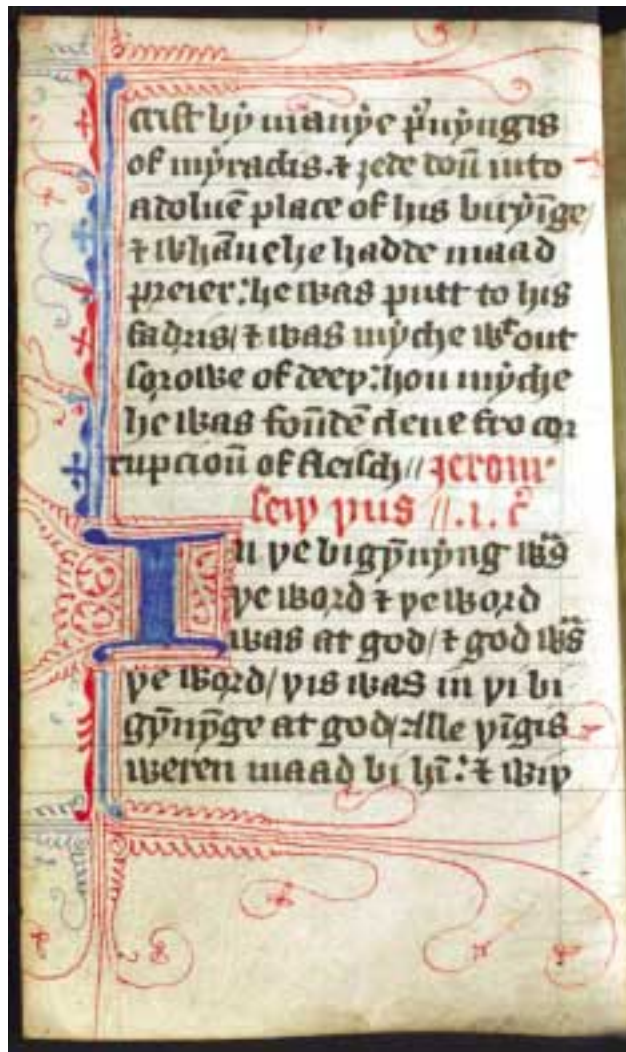 crist bẏ manẏe p̉uẏngis
of mẏraclis. ⁊ ȝede doū into
a doluē place of his buryīge /
⁊ whāne he hadde maad
preier: he was putt to his
fadris / ⁊ was mẏche wͭout
sorowe of deeþ: hou mẏche
he was foūdē clene fro cor
rupcioū of fleisch // Jerom
seiþ þus // .1. c̉
In þe bigȳnẏng wͣs
þe word ⁊ þe word
was at god / ⁊ god wͣs
þe word / þis was in þi bi
gȳnȳge at god / Alle þīgis
weren maad bi hī: ⁊ wiþ